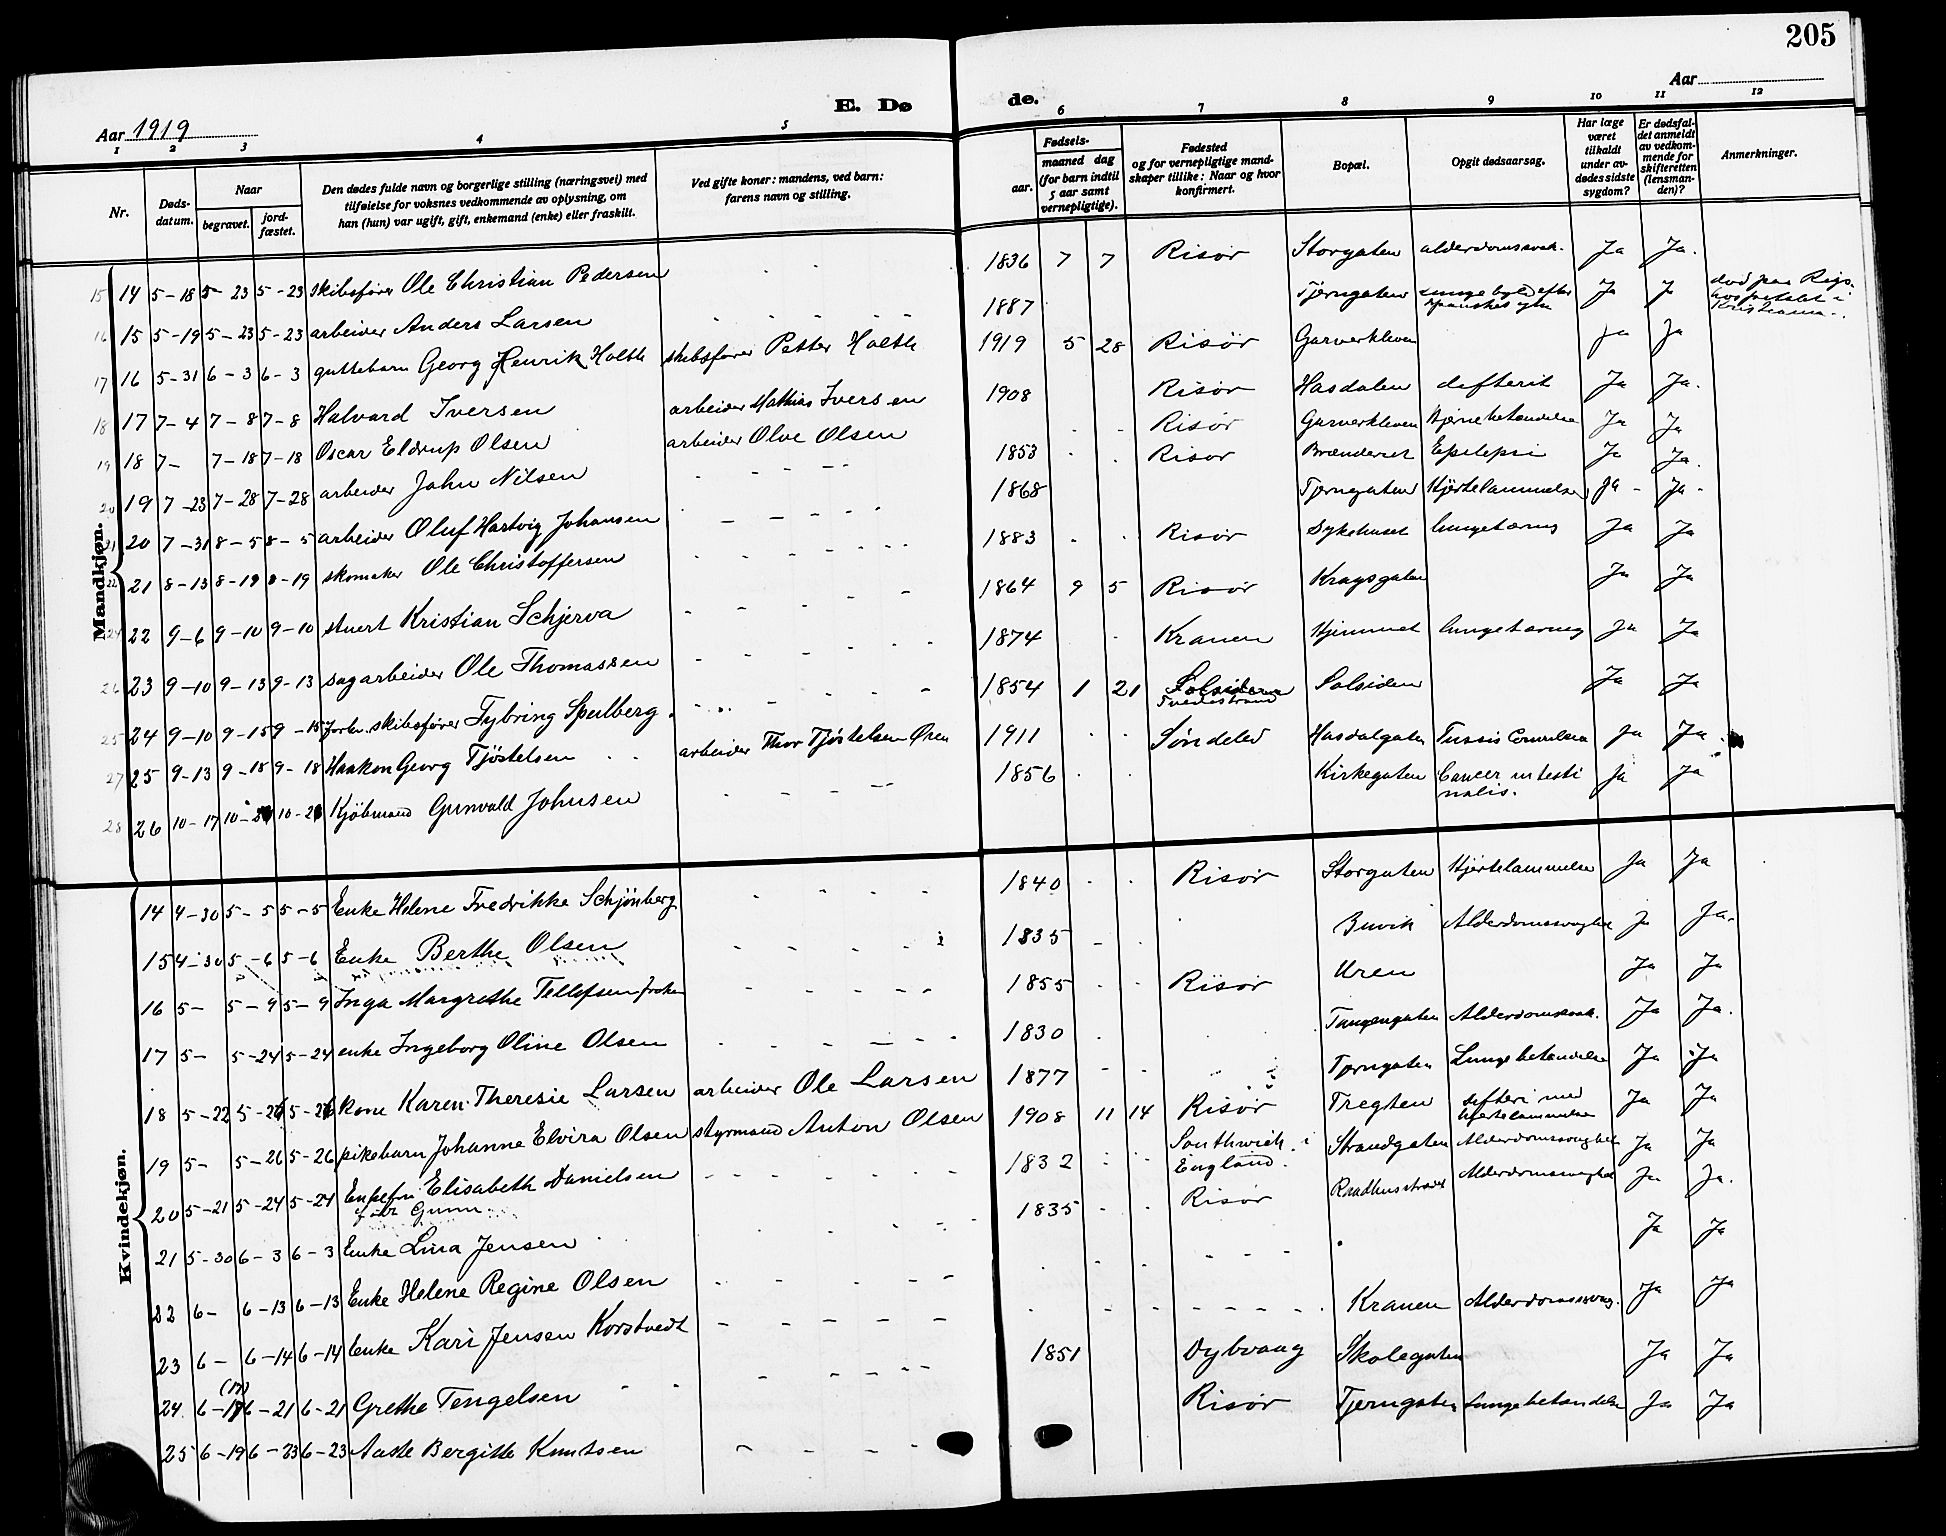 205
Aar 1919
E. Dø
de.
Aar
1 2 3 4 5 6 7 8 9 10 11 12
Nr.
Døds-
datum.
Naar
begravet.
jord-
fæstet.
Den dødes fulde navn og borgerlige stilling (næringsvei) med
tilføielse for voksnes vedkommende av oplysning, om
han (hun) var ugift, gift, enkemand (enke) eller fraskilt.
Ved gifte koner: mandens, ved barn:
farens navn og stilling.
Fødsels-
aar.
maaned dag
(for barn indtil
5 aar samt
vernepligtige).
Fødested
og for vernepligtige mand-
skaper tillike: Naar og hvor
konfirmert.
Bopæl.
Opgit dødsaarsag.
Har læge
været
tilkaldt
under av-
dødes sidste
sygdom?
Er dødsfal-
det anmeldt
av vedkom-
mende for
skifteretten
(lensman-
den)?
Anmerkninger.
Mandkjøn.
15 14 5-18 5-23 5-23 skibsfører Ole Christian Pedersen 1836 7 7 Risør Storgaten alderdomssvak. Ja Ja.
16 15 5-19 5-23 5-23 arbeider Anders Larsen 1887 Tjerngaten Ja J død paa Rigs-
hospitalet i
Kristiania.
17 16 5-31 6-3 6-3 guttebarn Georg Henrik Holth skibsfører Petter Holth 1919 5 28 Risør Garverkleven Ja Ja
18 17 7-4 7-8 7-8 Halvard Iversen arbeider Mathias Iversen 1908 Risør Hasdalen defterit Ja Ja.
19 18 7- 7-18 7-18 Oscar Eldrup Olsen arbeider Olve Olsen Risør Garverkleven Hjernebetændelse Ja Ja
20 19 7-23 7-28 7-28 arbeider John Nilsen 1853 Risør Brænderiet Epilepsi Ja Ja.
21 20 7-31 8-5 8-5 arbeider Oluf Hartvig Johansen 1868 Tjerngaten Hjertelammelse Ja Ja
22 21 8-13 8-19 8-19 skomaker Ole Christoffersen 1883 Risør Sykehuset lungetæring Ja Ja
24 22 9-6 9-10 9-10 stuert Kristian Schjerva 1864 9 5 Risør Kragsgaten Ja Ja
26 23 9-10 9-13 9-13 sagarbeider Ole Thomassen 1874 Kranen Hjemmet lungetæring Ja Ja
25 24 9-10 9-15 9-15 forhv. skibsfører Tybring Spulberg. 1854 1 21 Solsiden
Tvedestrand Solsiden Ja Ja
27 25 9-13 9-18 9-18 Haakon Georg Tjöstelsen arbeider Thor Tjöstelsen Øren 1911 Søndeled Hasdalgaten Tussis Ja Ja
28 26 10-17 10- 10- Kjöbmand Gunvald Johnsen 1856 Kirkegaten Cancer intesti
nalis. Ja Ja
Kvindekjøn.
14 4-30 5-5 5-5 Enke Helene Fredrikke Schjönberg 1840 Risør Storgaten Hjertelammelse Ja Ja
15 4-30 5-6 5-6 Enke Berthe Olsen 1835 Buvik Alderdomssvaghet Ja Ja.
16 5- 5-9 5-9 Inga Margrethe Tellefsen frøken 1855 Risør Uren Ja Ja
17 5- 5-24 5-24 enke Ingeborg Oline Olsen 1830 Tangengaten Alderdomssvak. Ja Ja.
18 5-22 5-26 5-26 kone Karen Theresie Larsen arbeider Ole Larsen 1877 Tjerngaten Lungebetændelse Ja Ja
19 5- 5-26 5-26 pikebarn Johanne Elvira Olsen styrmand Anton Olsen 1908 11 14 Risør Tregten defteri med
hjertelammelse Ja Ja
20 5-21 5-24 5-24 Enkefru Elisabeth Danielsen
født Gunn 1832 Southwick i
England. Strandgaten Alderdomssvaghet Ja Ja
21 5-30 6-3 6-3 Enke Lina Jensen 1835 Risør Raadhusstrædet Alderdomssvaghet Ja Ja.
22 6- 6-13 6-13 Enke Helene Regine Olsen Ja Ja
23 6- 6-14 6-14 Enke Kari Jensen Korstvedt Kranen Alderdomssvag. Ja Ja
(17)
24 6-17 6-21 6-21 Grethe Tengelsen 1851 Dybvaag Skolegaten Ja Ja
25 6-19 6-23 6-23 Aaste Bergitte Knutsen Risør Tjerngaten Lungebetændelse Ja Ja